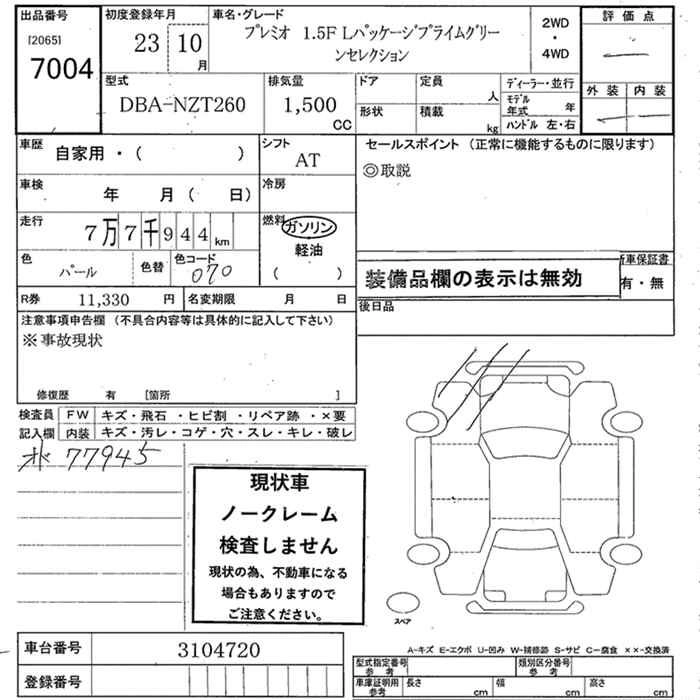 出品番号
[2065]
7004
初度登録年月
23 10
月
車名・グレード
プレミオ 1.5F Lパッケージプライムグリー
ンセレクション
2WD
・
4WD
評価点
外装 内装
型式
DBA-NZT260
排気量
1,500
CC
ドア
定員
人
形状
積載
kg
ディーラー・並行
モデル
年式 年
ハンドル 左・右
車歴
自家用・( )
シフト
AT
セールスポイント (正常に機能するものに限ります)
◎取説
車検
年 月( 日)
冷房
走行
7万7千944km
燃料
ガソリン
軽油
( )
色
パール
色替
色コード
070
装備品欄の表示は無効
新車保証書
有・無
R券 11,330 円
名変期限 月 日
後日品
注意事項申告欄 (不具合内容等は具体的に記入して下さい)
※事故現状
修復歴 有 [箇所 ]
検査員
記入欄
FW キズ・飛石 ・ヒビ割 ・リペア跡 ・×要
内装 キズ・汚レ・コゲ・穴・スレ・キレ・破レ
77945
現状車
ノークレーム
検査しません
現状の為、不動車になる
場合もありますので
ご注意ください。
スペア
A-キズ E-エクボ U-凹み W-補修跡 S-サビ C-腐食 ××-交換済
車台番号 3104720
登録番号
型式指定番号
参考
類別区分番号
参考
車庫証明用
参考
長さ cm
幅 cm
高さ cm